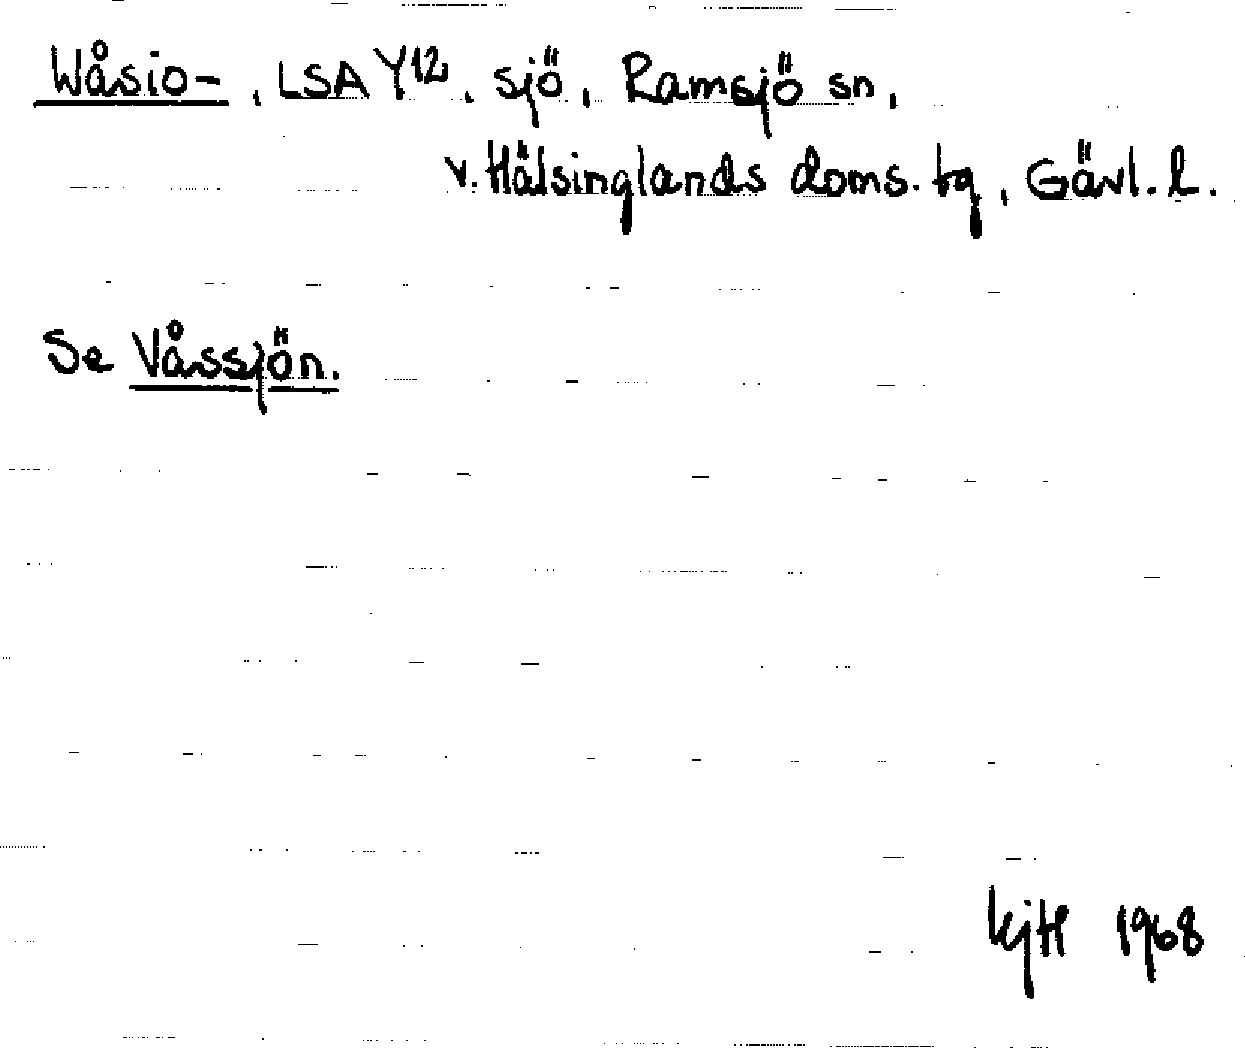 Wåsio-, LSA Y12, sjö, Ramsjö sn,
v. Hälsinglands doms. tg, Gävl. l.
Se Våssjön.
KjH 1968